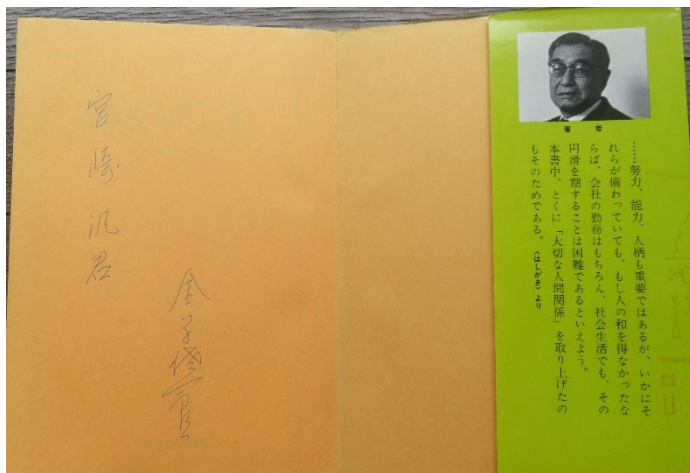 著者
……努力、能力、人柄も重要ではあるが、いかにそ
れらが備わっていても、もし人の和を得なかったな
らば、会社の勤務はもちろん、社会生活でも、その
円滑を期することは困難であるといえよう。
本書中、とくに「大切な人間関係」を取り上げたの
もそのためである。（はしがき）より
宮崎汎君
金子